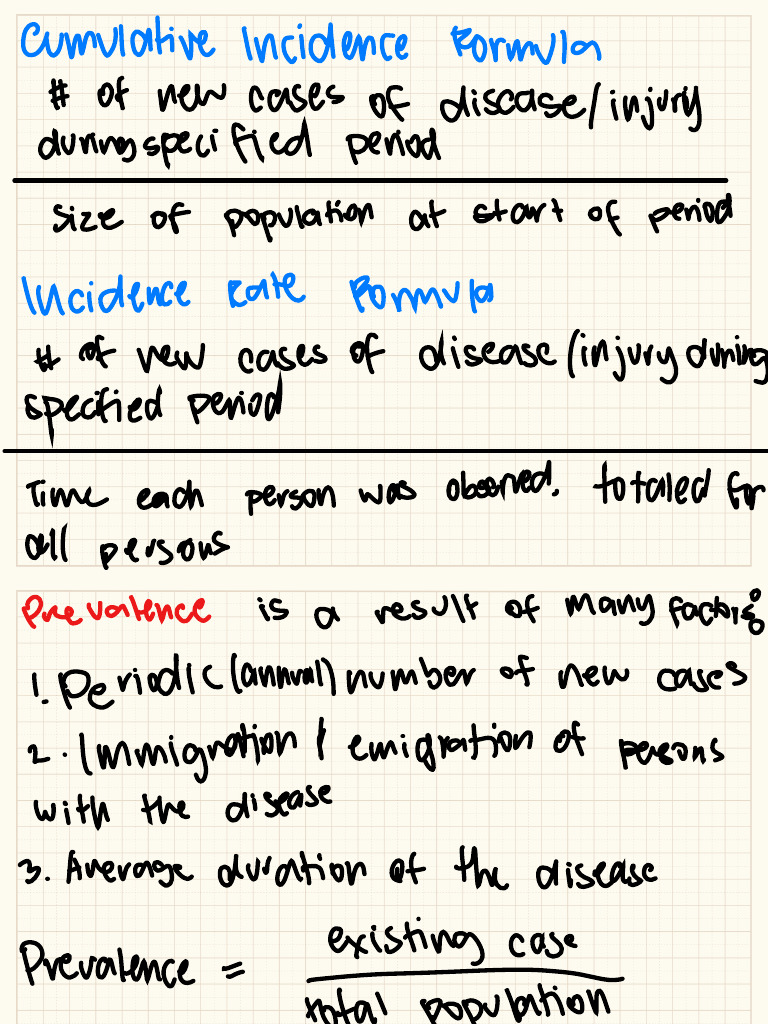 Cumulative Incidence Formula
# of new cases of disease/injury
during specified period
Size of population at start of period
Incidence Rate Formula
# of new cases of disease/injury during
specified period
Time each person was observed, totaled for
all persons
Prevalence is a result of many factors:
1. Periodic (annual) number of new cases
2. Immigration / emigration of persons
with the disease
3. Average duration of the disease
Prevalence = existing case
total population